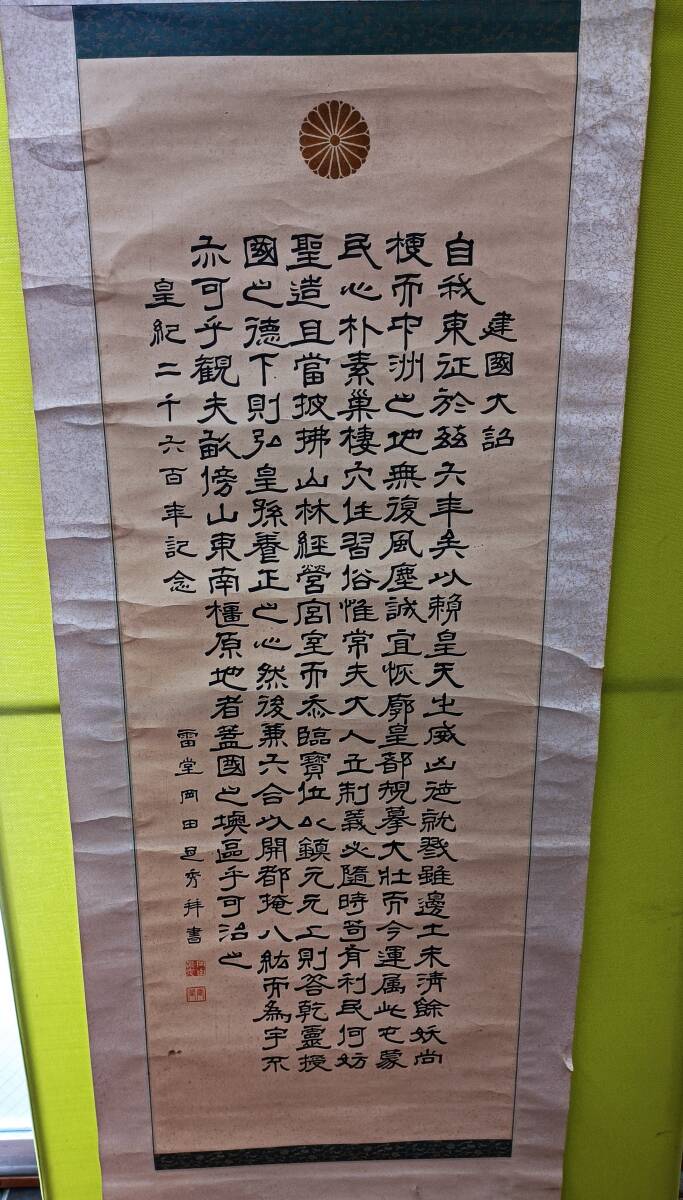 建國大詔
自我東征於茲六年矣以賴皇天之威凶徒就戮雖邊土未清餘妖尚
梗而中洲之地無復風塵誠宜恢廓皇都規摹大壮而今運属此屯蒙
民心朴素巣棲穴住習俗惟常夫大人立制義必隨時苟有利民何妨
聖造且當披拂山林經營宮室而恭臨寶位以鎮元元上則答乾靈授
國之德下則弘皇孫養正之心然後兼六合以開都掩八紘而為宇不
亦可乎観夫畝傍山東南橿原地者蓋國之墺區乎可治之
皇紀二千六百年記念
雷堂岡田秀拜書